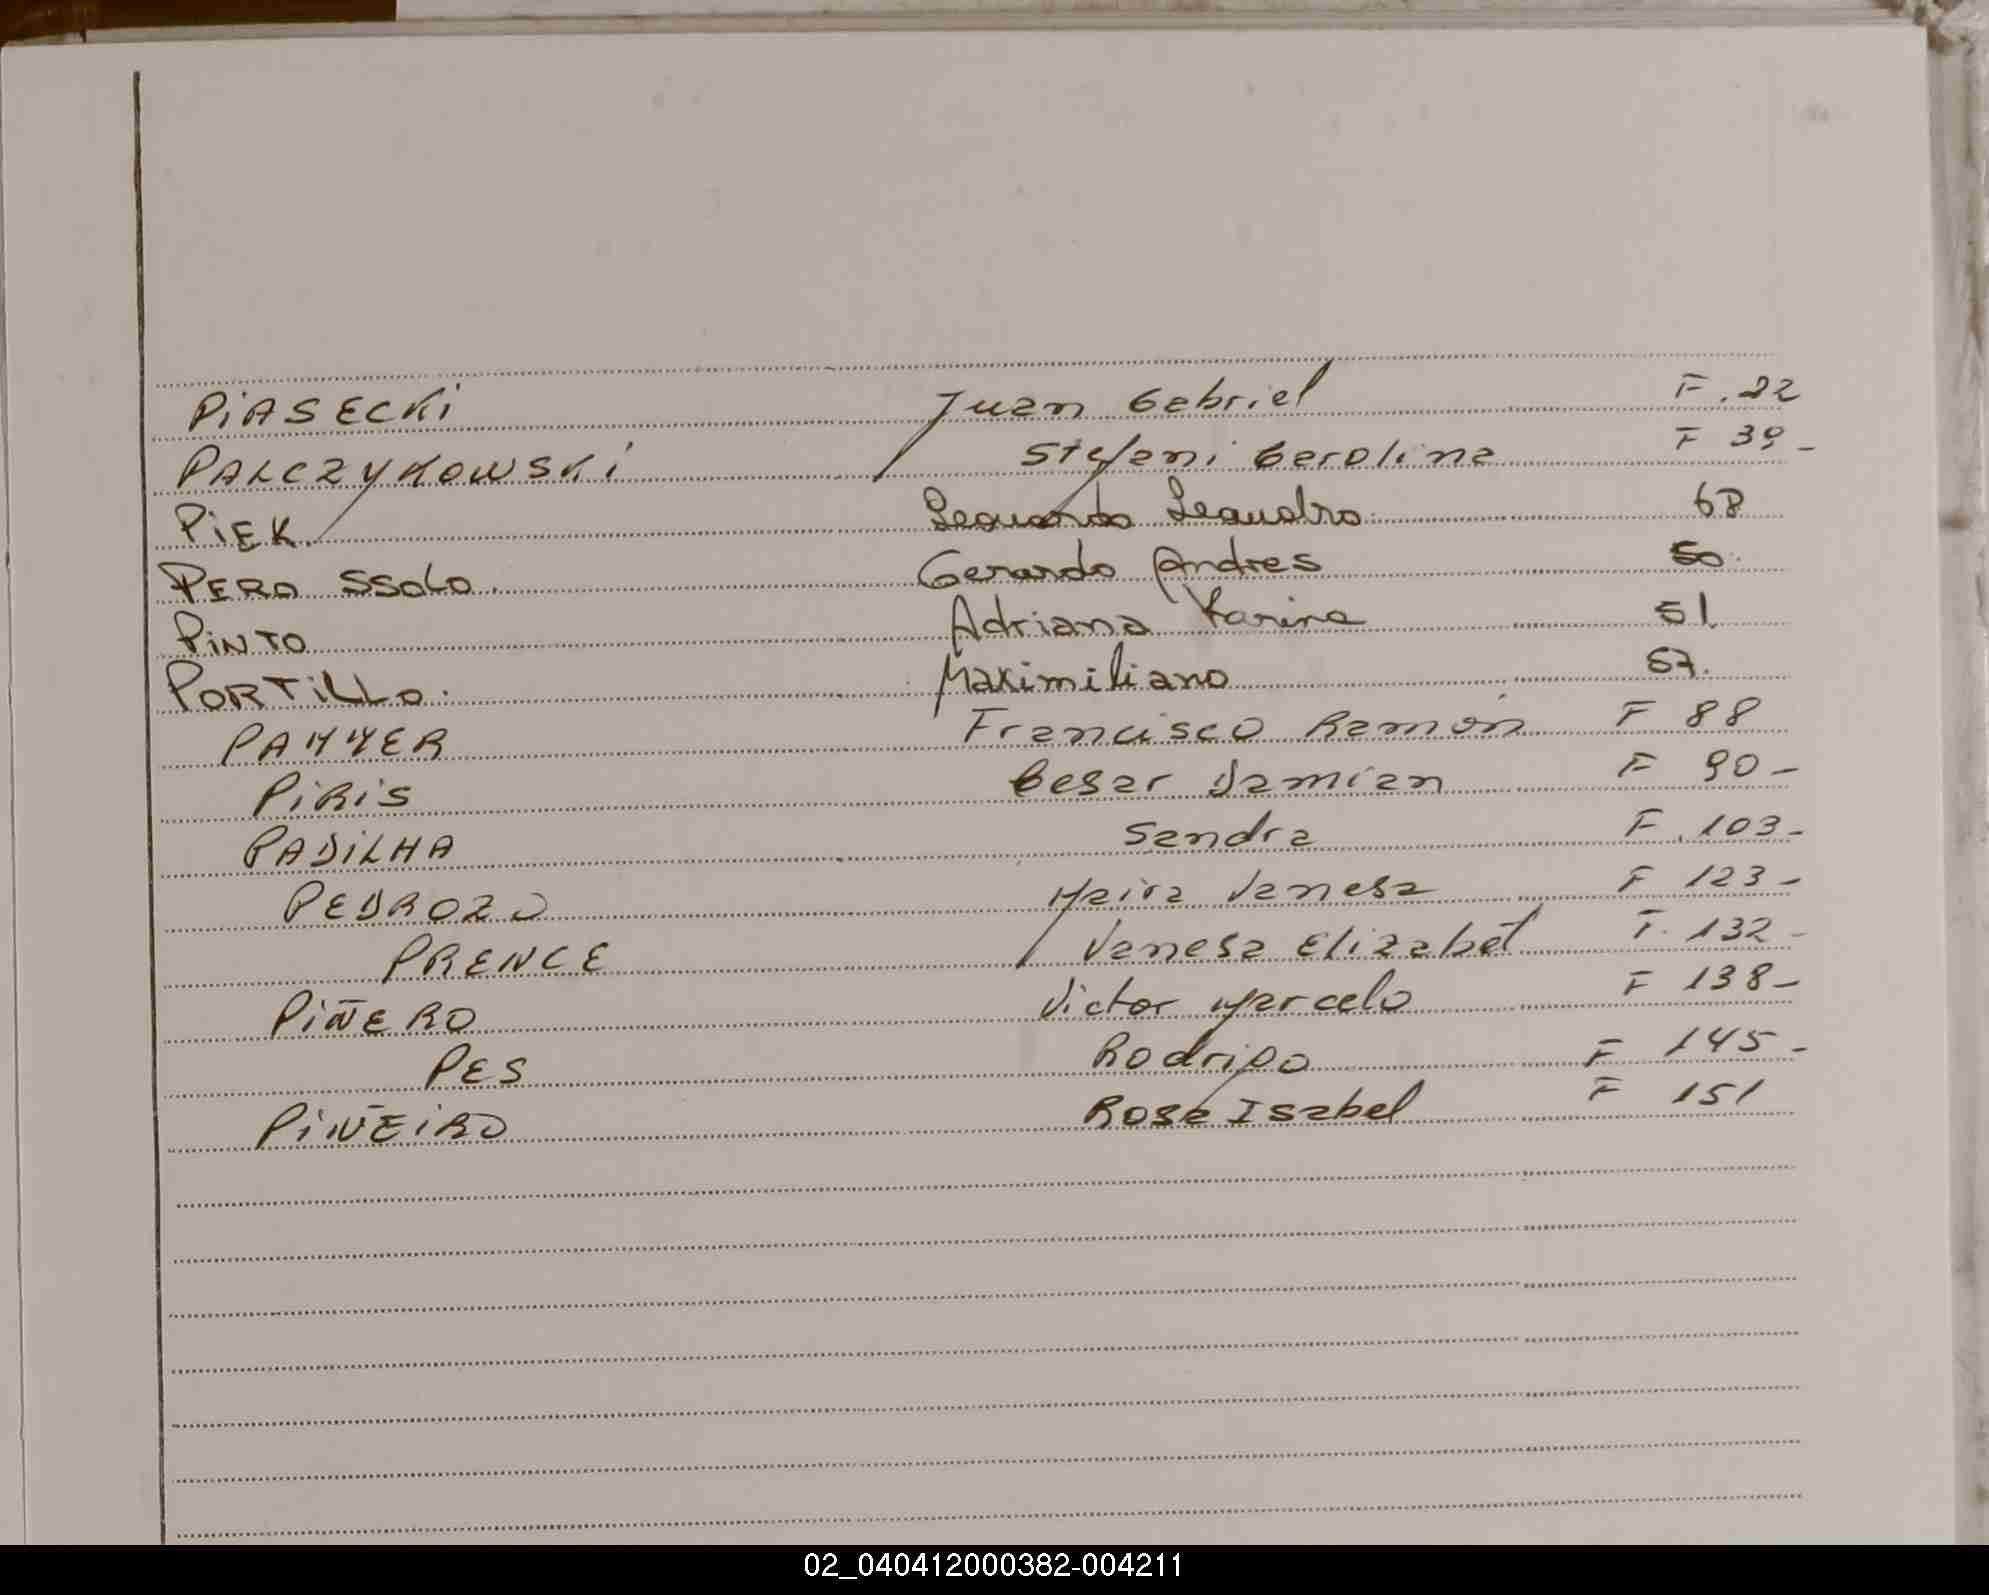 PiASECKi Juan Gabriel F. 22
PALCZYKOWSKi Stefani Carolina F 39 -
PiEK. Leonardo Leandro 68
PERO SSOLO. Gerardo Andres 50.
PiNTO Adriana Karina 51
PORTiLLO. Maximiliano 57.
Francisco Ramón F 88
PiRiS Cesar Damian F 90 -
PADiLHA Sandra F. 103 -
PEDROZO Maira Vanesa F 123 -
PRENCE Vanesa Elizabet F. 132 -
PiÑERO Victor Marcelo F 138 -
PES Rodrigo F 145 -
PiÑEiRO Rosa Isabel F 151
02_040412000382-004211